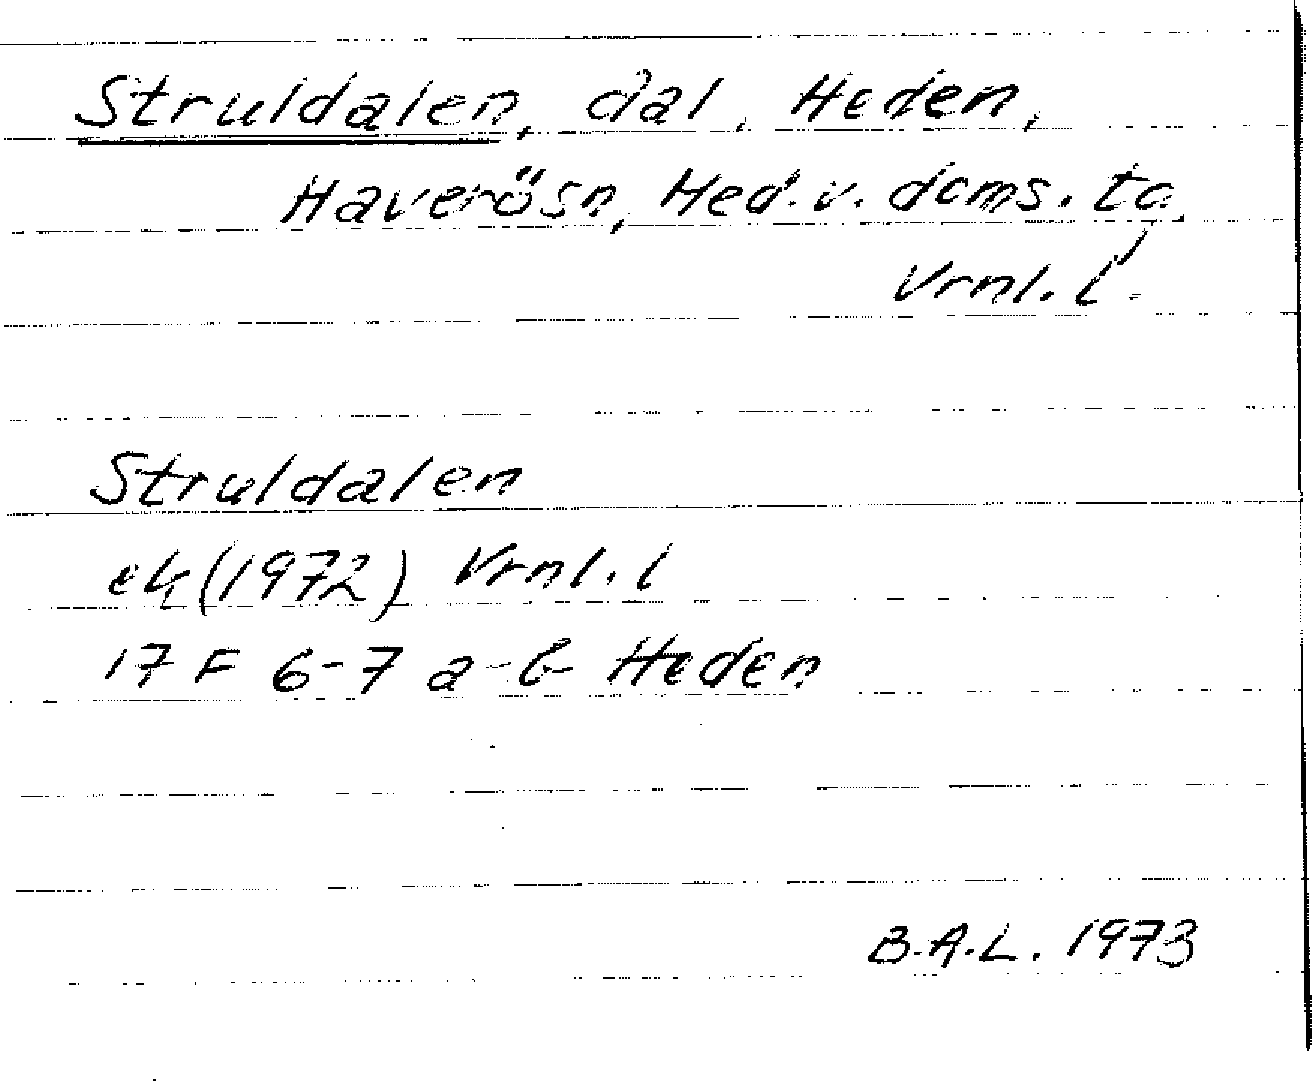 Struldalen, dal, Heden,
Haverösn, Hed. v. doms. to,
Vrnl. l.
Struldalen
ek (1972) Vrnl. l
17 F 6-7 a-b Heden
B.A.L. 1973